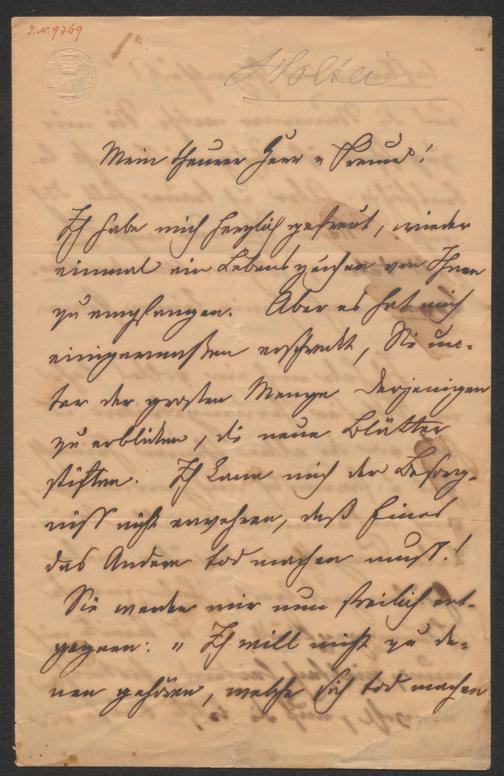 I.N. 9769
Holtei
Mein theurer Herr u Freund!
Ich habe mich herzlich gefreut, wieder
einmal ein Lebenszeichen von Ihnen
zu empfangen. Aber es hat mich
einigermaßen erschreckt, Sie un-
ter der großen Menge derjenigen
zu erblicken, die neue Blätter
stiften. Ich kann mich der Besorg-
niß nicht erwehren, daß Eines
das Andere tod machen muß!
Sie werden mir nun freilich ent-
gegnen: „Ich will nicht zu de-
nen gehören, welche sich tod machen